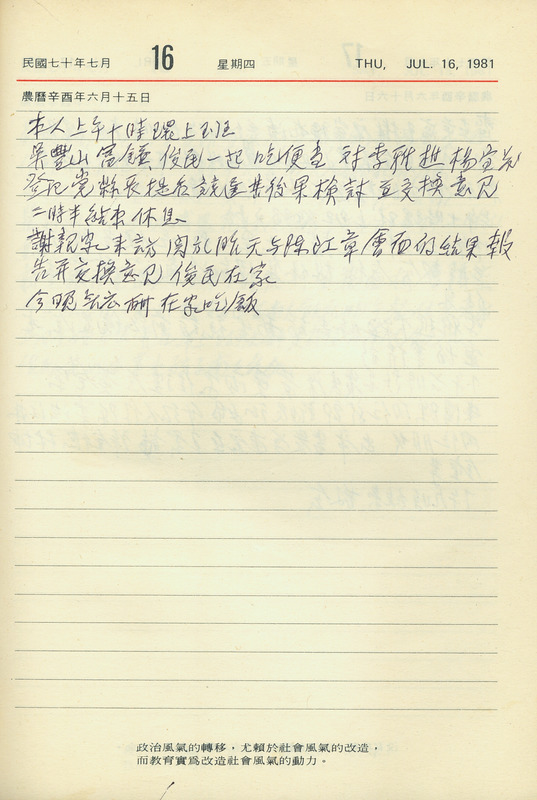 民國七十年七月 16 星期四 THU, JUL. 16, 1981
農曆辛酉年六月十五日
本人上午十時環上班
吳豐山 富鎮 俊民一起吃便當 対李雅樵 楊宝发
登記党縣長提名競選其後果檢討並交換意見
二時半結束休息
謝親家來訪 関於昨天与陈江章會面的結果報
告并交換意見 俊民在家
今晚 在家吃飯
政治風氣的轉移，尤賴於社會風氣的改造，
而教育實爲改造社會風氣的動力。